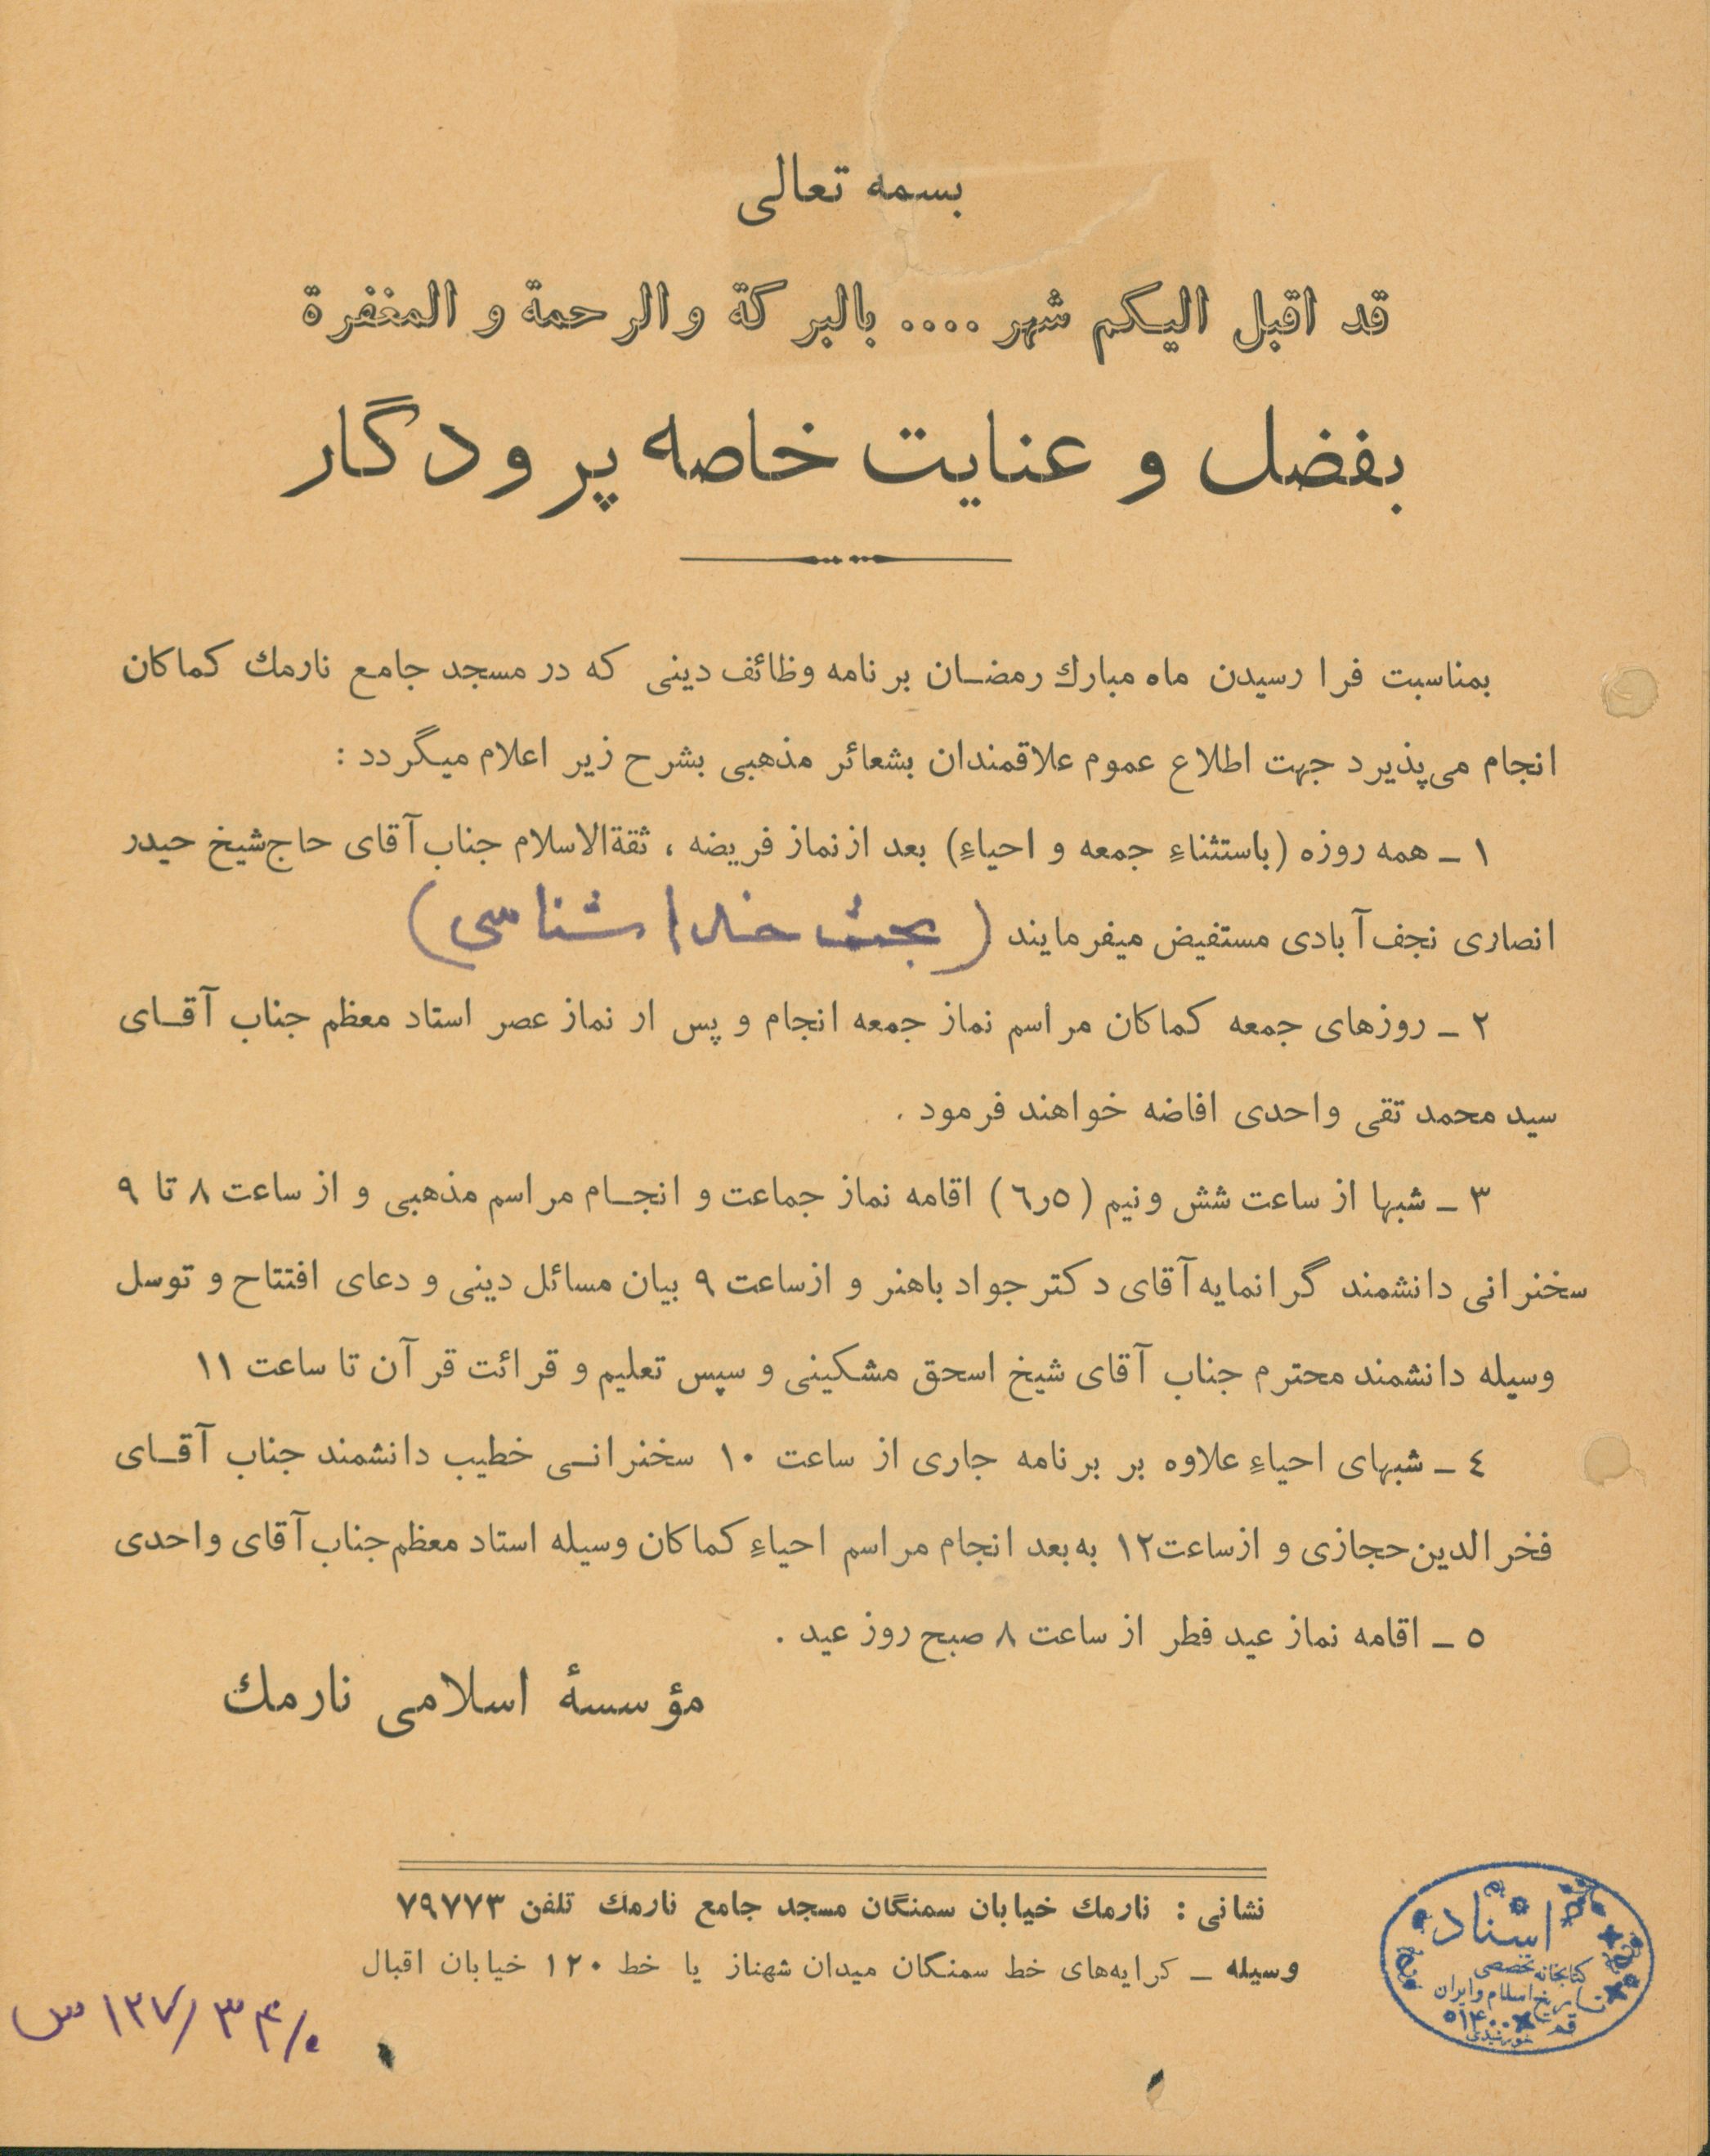 بسمه تعالی
قد اقبل الیکم شهر .... بالبرکة والرحمة و المغفرة
بفضل و عنایت خاصه پرودگار
بمناسبت فرا رسیدن ماه مبارك رمضان برنامه وظائف دینی که در مسجد جامع نارمك کماکان
انجام می‌پذیرد جهت اطلاع عموم علاقمندان بشعائر مذهبی بشرح زیر اعلام میگردد :
۱ ـ همه روزه (باستثناءِ جمعه و احیاءِ) بعد ازنماز فریضه ، ثقةالاسلام جناب آقای حاج‌شیخ حیدر
انصاری نجف‌آبادی مستفیض میفرمایند (بحث خداشناسی)
۲ ـ روزهای جمعه کماکان مراسم نماز جمعه انجام و پس از نماز عصر استاد معظم جناب آقای
سید محمد تقی واحدی افاضه خواهند فرمود .
۳ ـ شبها از ساعت شش ونیم (٦ر٥) اقامه نماز جماعت و انجام مراسم مذهبی و از ساعت ۸ تا ۹
سخنرانی دانشمند گرانمایه آقای دکتر جواد باهنر و ازساعت ۹ بیان مسائل دینی و دعای افتتاح و توسل
وسیله دانشمند محترم جناب آقای شیخ اسحق مشکینی و سپس تعلیم و قرائت قرآن تا ساعت ۱۱
٤ ـ شبهای احیاءِ علاوه بر برنامه جاری از ساعت ۱۰ سخنرانی خطیب دانشمند جناب آقای
فخرالدین‌حجازی و ازساعت۱۲ به‌بعد انجام مراسم احیاءِ کماکان وسیله استاد معظم جناب آقای واحدی
٥ ـ اقامه نماز عید فطر از ساعت ۸ صبح روز عید .
مؤسسهٔ اسلامی نارمك
نشانی : نارمك خیابان سمنگان مسجد جامع نارمك تلفن ۷۹۷۷۳
وسیله ـ کرایه‌های خط سمنگان میدان شهناز یا خط ۱۲۰ خیابان اقبال
اسناد
کتابخانه تخصصی
تاریخ اسلام و ایران
قم